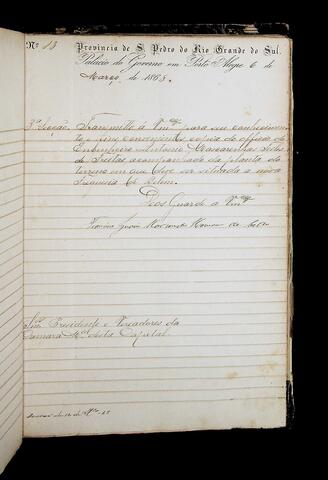 Nº 13 Provincia de S. Pedro do Rio Grande do Sul.
Palacio do Governo em Porto Alegre 6 de
Março de 1863.
3ª Secção. Transmitto á Vmces para seu conhecimen-
to, e fins convenientes copia do officio do
Engenheiro Antonio Mascarenhas Telles
de Freitas acompanhado da planta do
terreno em que deve ser situada a nova
Freguezia de Belem.
Deos Guarde a Vmces
Snrs. Presidente e Vereadores da
Camara Mal desta Capital.